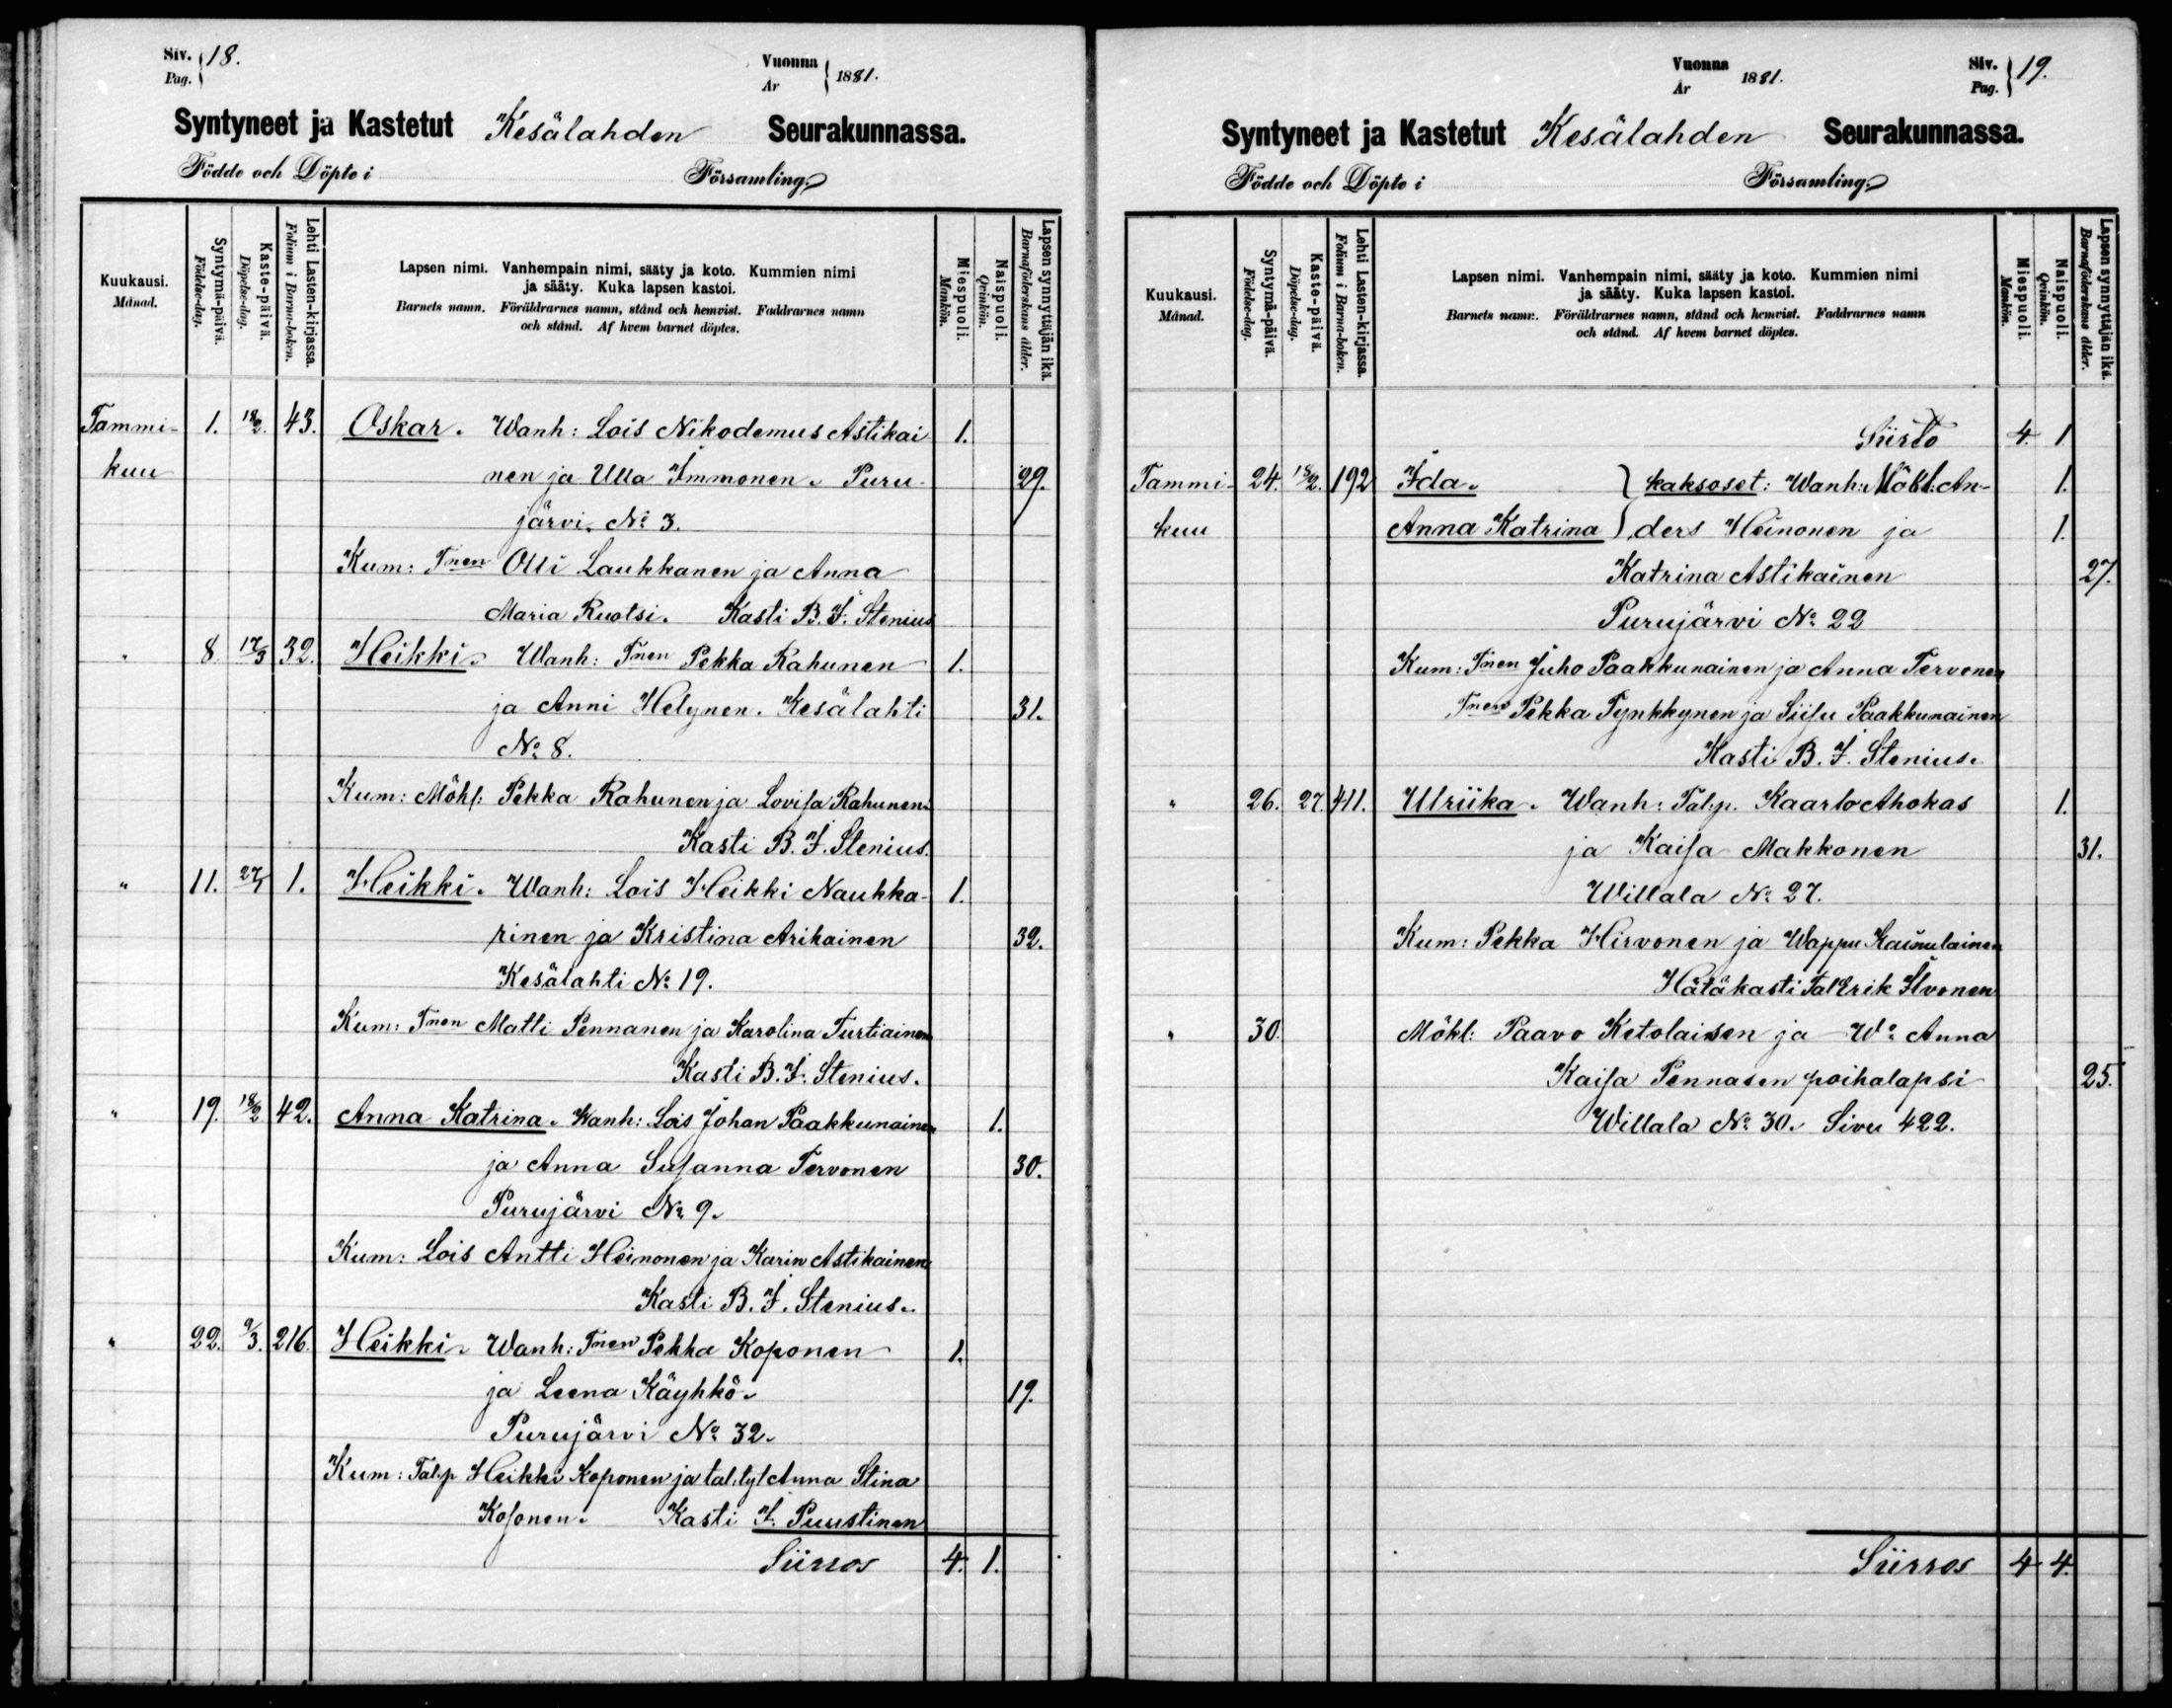 Siv. 18.
Pag.
Vuonna
År 1881.
Syntyneet ja Kastetut Kesälahden Seurakunnassa.
Födde och Döpte i Församling.
Kuukausi.
Månad.
Syntymä-päivä.
Födelse-dag.
Kaste-päivä.
Döpelse-dag.
Lehti Lasten-kirjassa.
Folium i Barna-boken.
Lapsen nimi. Vanhempain nimi, sääty ja koto. Kummien nimi
ja sääty. Kuka lapsen kastoi.
Barnets namn. Föräldrarnes namn, stånd och hemvist. Faddrarnes namn
och stånd. Af hvem barnet döptes.
Miespuoli.
Mankön.
Naispuoli.
Qvinkön.
Lapsen synnyttäjän ikä.
Barnaföderskans ålder.
Tammi- 1. 18/2. 43. Oskar. Wanh: Lois Nikodemus Astikai 1.
kuu nen ja Ulla Immonen. Puru- 29.
järvi. No 3.
Kum: Tnen Olli Laukkanen ja Anna
Maria Ruotsi. Kasti B. F. Stenius
" 8. 17/3 32. Heikki. Wanh: Tnen Pekka Rahunen 1.
ja Anni Helynen. Kesälahti 31.
No 8.
Kum: Mökl: Pekka Rahunen ja Lovisa Rahunen.
Kasti B. F. Stenius.
" 11. 27/1 1. Heikki. Wanh: Lois Heikki Naukka- 1.
rinen ja Kristina Arikainen 32.
Kesälahti No 19.
Kum: Tnen Matti Pennanen ja Karolina Turtiainen
Kasti B. F. Stenius.
" 19. 18/2 42. Anna Katrina. Wanh: Lois Johan Paakkunainen 1.
ja Anna Susanna Tervonen 30.
Purujärvi No 9.
Kum: Lois Antti Heinonen ja Karin Astikainen
Kasti B. F. Stenius.
" 22. 9/3. 216. Heikki. Wanh: Tnen Pekka Koponen 1.
ja Leena Käyhkö. 19.
Purujärvi No 32.
Kum: Tal:p Heikki Koponen ja tal:tyt Anna Stina
Kosonen. Kasti F. Puustinen
Siirros 4. 1.
Vuonna
År 1881.
Siv. 19.
Pag.
Syntyneet ja Kastetut Kesälahden Seurakunnassa.
Födde och Döpte i Församling.
Kuukausi.
Månad.
Syntymä-päivä.
Födelse-dag.
Kaste-päivä.
Döpelse-dag.
Lehti Lasten-kirjassa.
Folium i Barna-boken.
Lapsen nimi. Vanhempain nimi, sääty ja koto. Kummien nimi
ja sääty. Kuka lapsen kastoi.
Barnets namn. Föräldrarnes namn, stånd och hemvist. Faddrarnes namn
och stånd. Af hvem barnet döptes.
Miespuoli.
Mankön.
Naispuoli.
Qvinkön.
Lapsen synnyttäjän ikä.
Barnaföderskans ålder.
Siirto 4. 1
Tammi- 24. 18/2. 192 Ida. kaksoset: Wanh: Mökl: An- 1.
kuu Anna Katrina ders Heinonen ja 1.
Katrina Astikainen 27.
Purujärvi No 22
Kum: Tnen Juho Paakkunainen ja Anna Tervonen
Tnen Pekka Tynkkynen ja Siisu Paakkunainen
Kasti B. F. Stenius.
" 26. 27. 411. Ulriika. Wanh: Tal:p. Kaarlo Ahokas 1.
ja Kaisa Makkonen 31.
Willala No 27.
Kum: Pekka Hirvonen ja Wappu Kainulainen
Hätäkasti Tal Erik Ilvonen
" 30. Mökl: Paavo Ketolaisen ja Wo Anna
Kaisa Pennasen poikalapsi 25.
Willala No 30. Sivu 422.
Siirros 4 4.